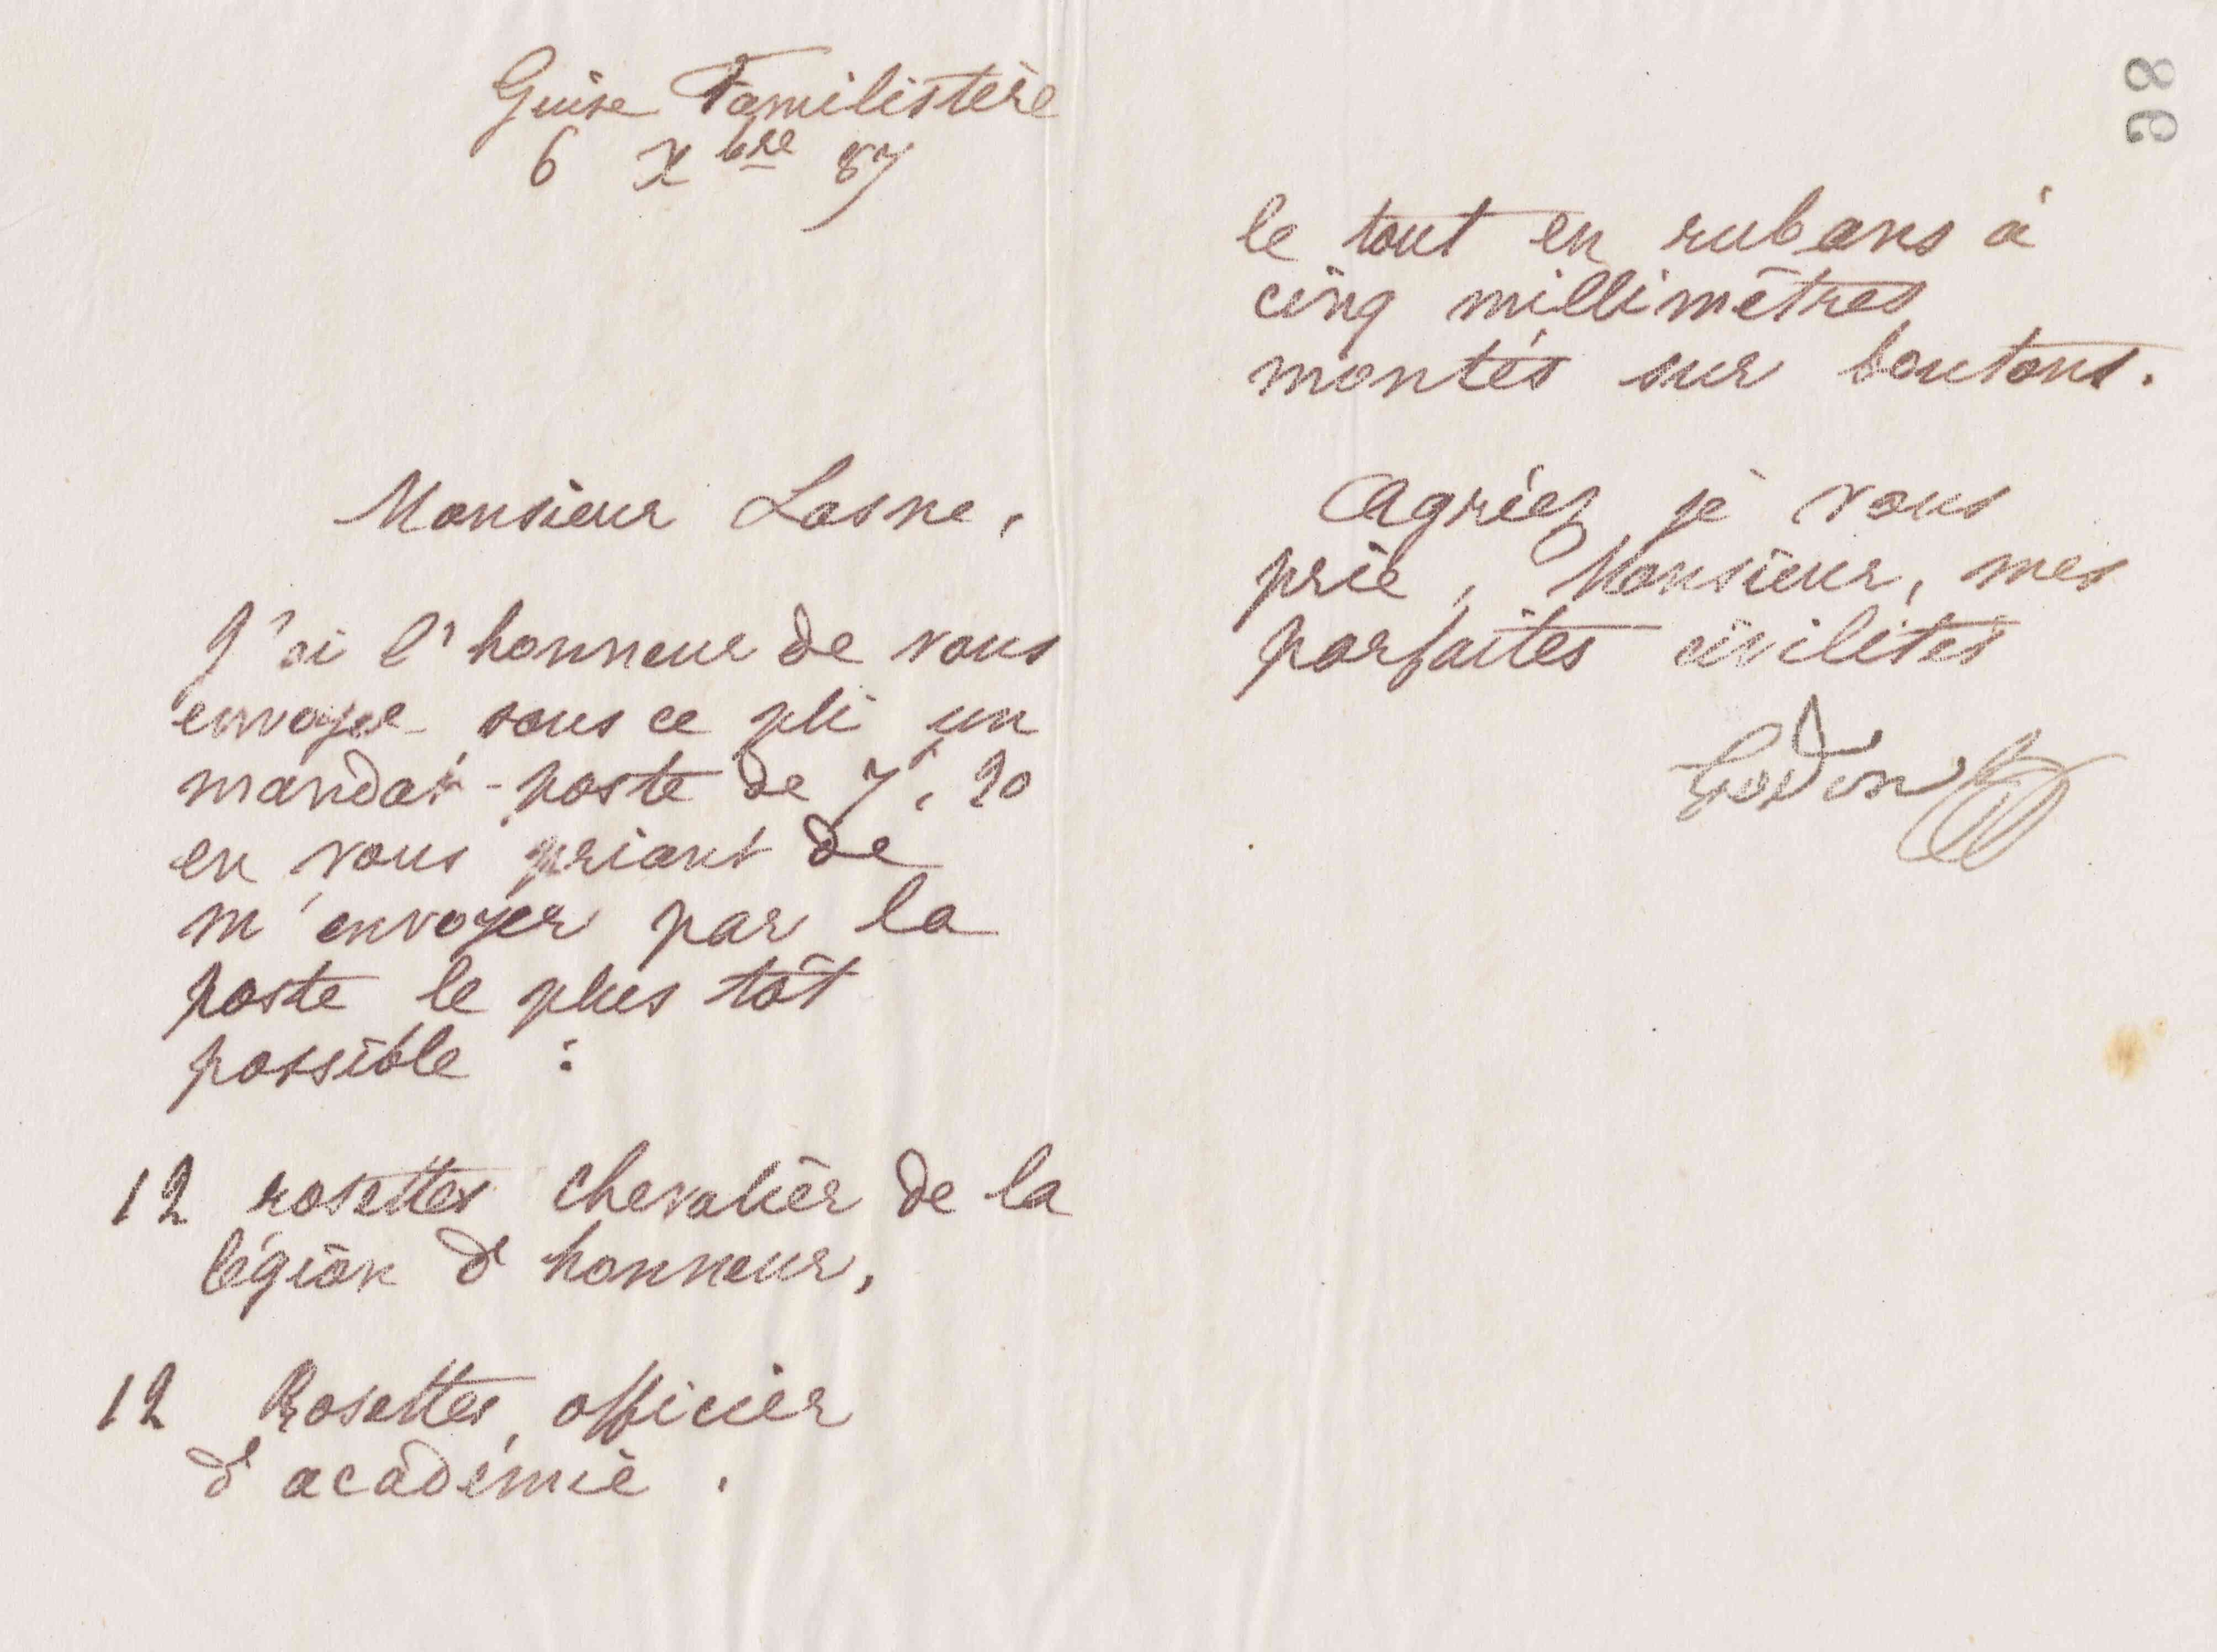 Guise Familistère
6 Xbre 87
Monsieur Lasne,
J'ai l'honneur de vous
envoyer sous ce pli un
mandat-poste de 7f,20
en vous priant de
m'envoyer par la
poste le plus tôt
possible :
12 rosettes chevalier de la
légion d'honneur,
12 Rosettes, officier
d'académie.
98
le tout en rubans à
cinq millimètres
montés sur boutons.
Agréez, je vous
prie, Monsieur, mes
parfaites civilités
Godin